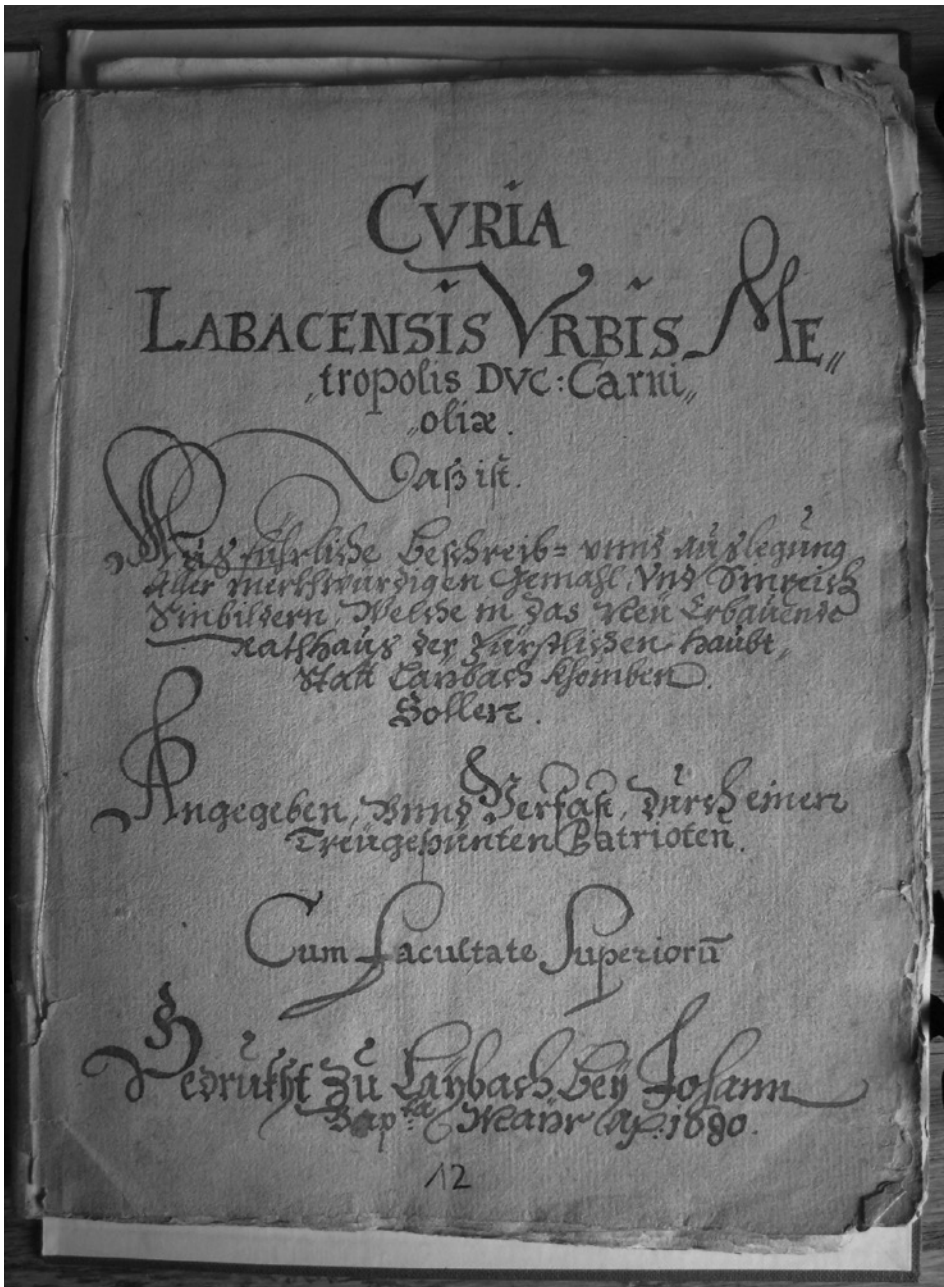 CVRIA
LABACENSIS VRBIS ME„
„tropolis DVC: Carni„
„oliæ.
Daß ist.
Ausführliche Beschreib= vnnd Außlegung
Aller merkhwürdigen Gemähl, Vnd Sinreich
Sinbildern, Welche in das Neu Erbauende
Rathhaus der Fürstlichen Haubt„
Statt Laÿbach khomben
Sollen.
Angegeben, Vnnd Verfast, durch einen
Treugesünten Patrioten.
Cum facultate Superiorū
Gedrukht zu Laÿbach beÿ Johann
Bap:ta Maÿr Aº: 1680.
12